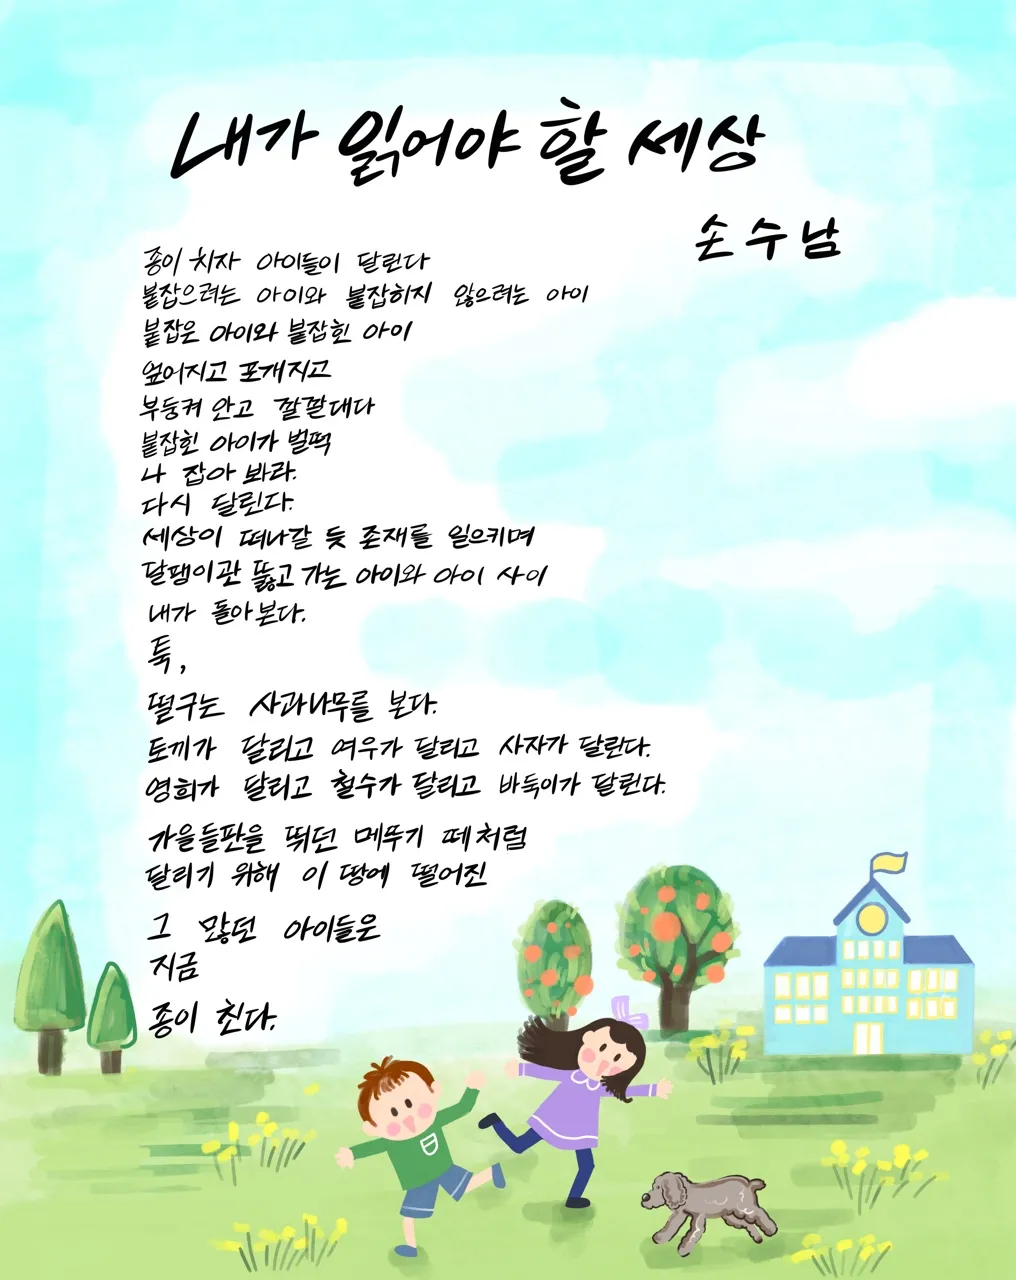 내가 읽어야 할 세상
손수남
종이 치자 아이들이 달린다
붙잡으려는 아이와 붙잡히지 않으려는 아이
붙잡은 아이와 붙잡힌 아이
엎어지고 포개지고
부둥켜 안고 깔깔대다
붙잡힌 아이가 벌떡
나 잡아 봐라.
다시 달린다.
세상이 떠나갈 듯 존재를 일으키며
달팽이관 뚫고 가는 아이와 아이 사이
내가 돌아본다.
툭,
떨구는 사과나무를 본다.
토끼가 달리고 여우가 달리고 사자가 달린다.
영희가 달리고 철수가 달리고 바둑이가 달린다.
가을들판을 뛰던 메뚜기 떼처럼
달리기 위해 이 땅에 떨어진
그 많던 아이들은
지금
종이 친다.